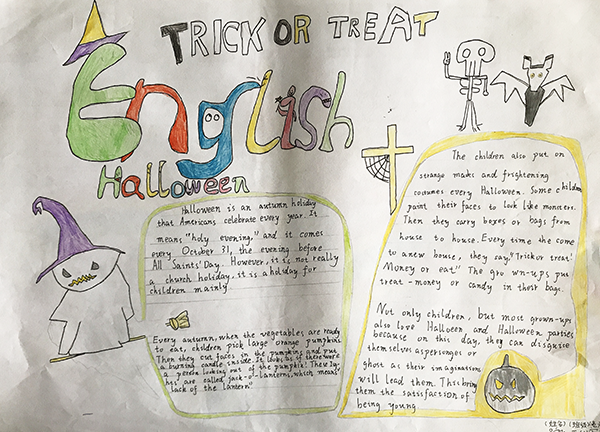 TRICK OR TREAT
English
Halloween
Halloween is an autumn holiday
that Americans celebrate every year. It
means "holy evening," and it comes
every October 31, the evening before
All Saints' Day. However, it is not really
a church holiday, it is a holiday for
children mainly.
Every autumn, when the vegetables are ready
to eat, children pick large orange pumpkins
Then they cut faces in the pumpkins and put
a burning candle inside. It looks as if there were
a person looking out of the pumpkin! These
are called jack-o'-lanterns, which means
"Jack of the lantern".
The children also put on
strange masks and frightening
costumes every Halloween. Some children
paint their faces to look like monsters.
Then they carry boxes or bags from
house to house. Every time the come
to a new house, they say, "Trick or treat!
Money or eat!" The grown-ups put
treat-money or candy in their bags.
Not only children, but most grown-ups
also love Halloeen and Halloween parties
because on this day, they can disguise
themselves as personges or
ghost as their imaginations
will lead them. This bring
them the satisfaction of
being young.